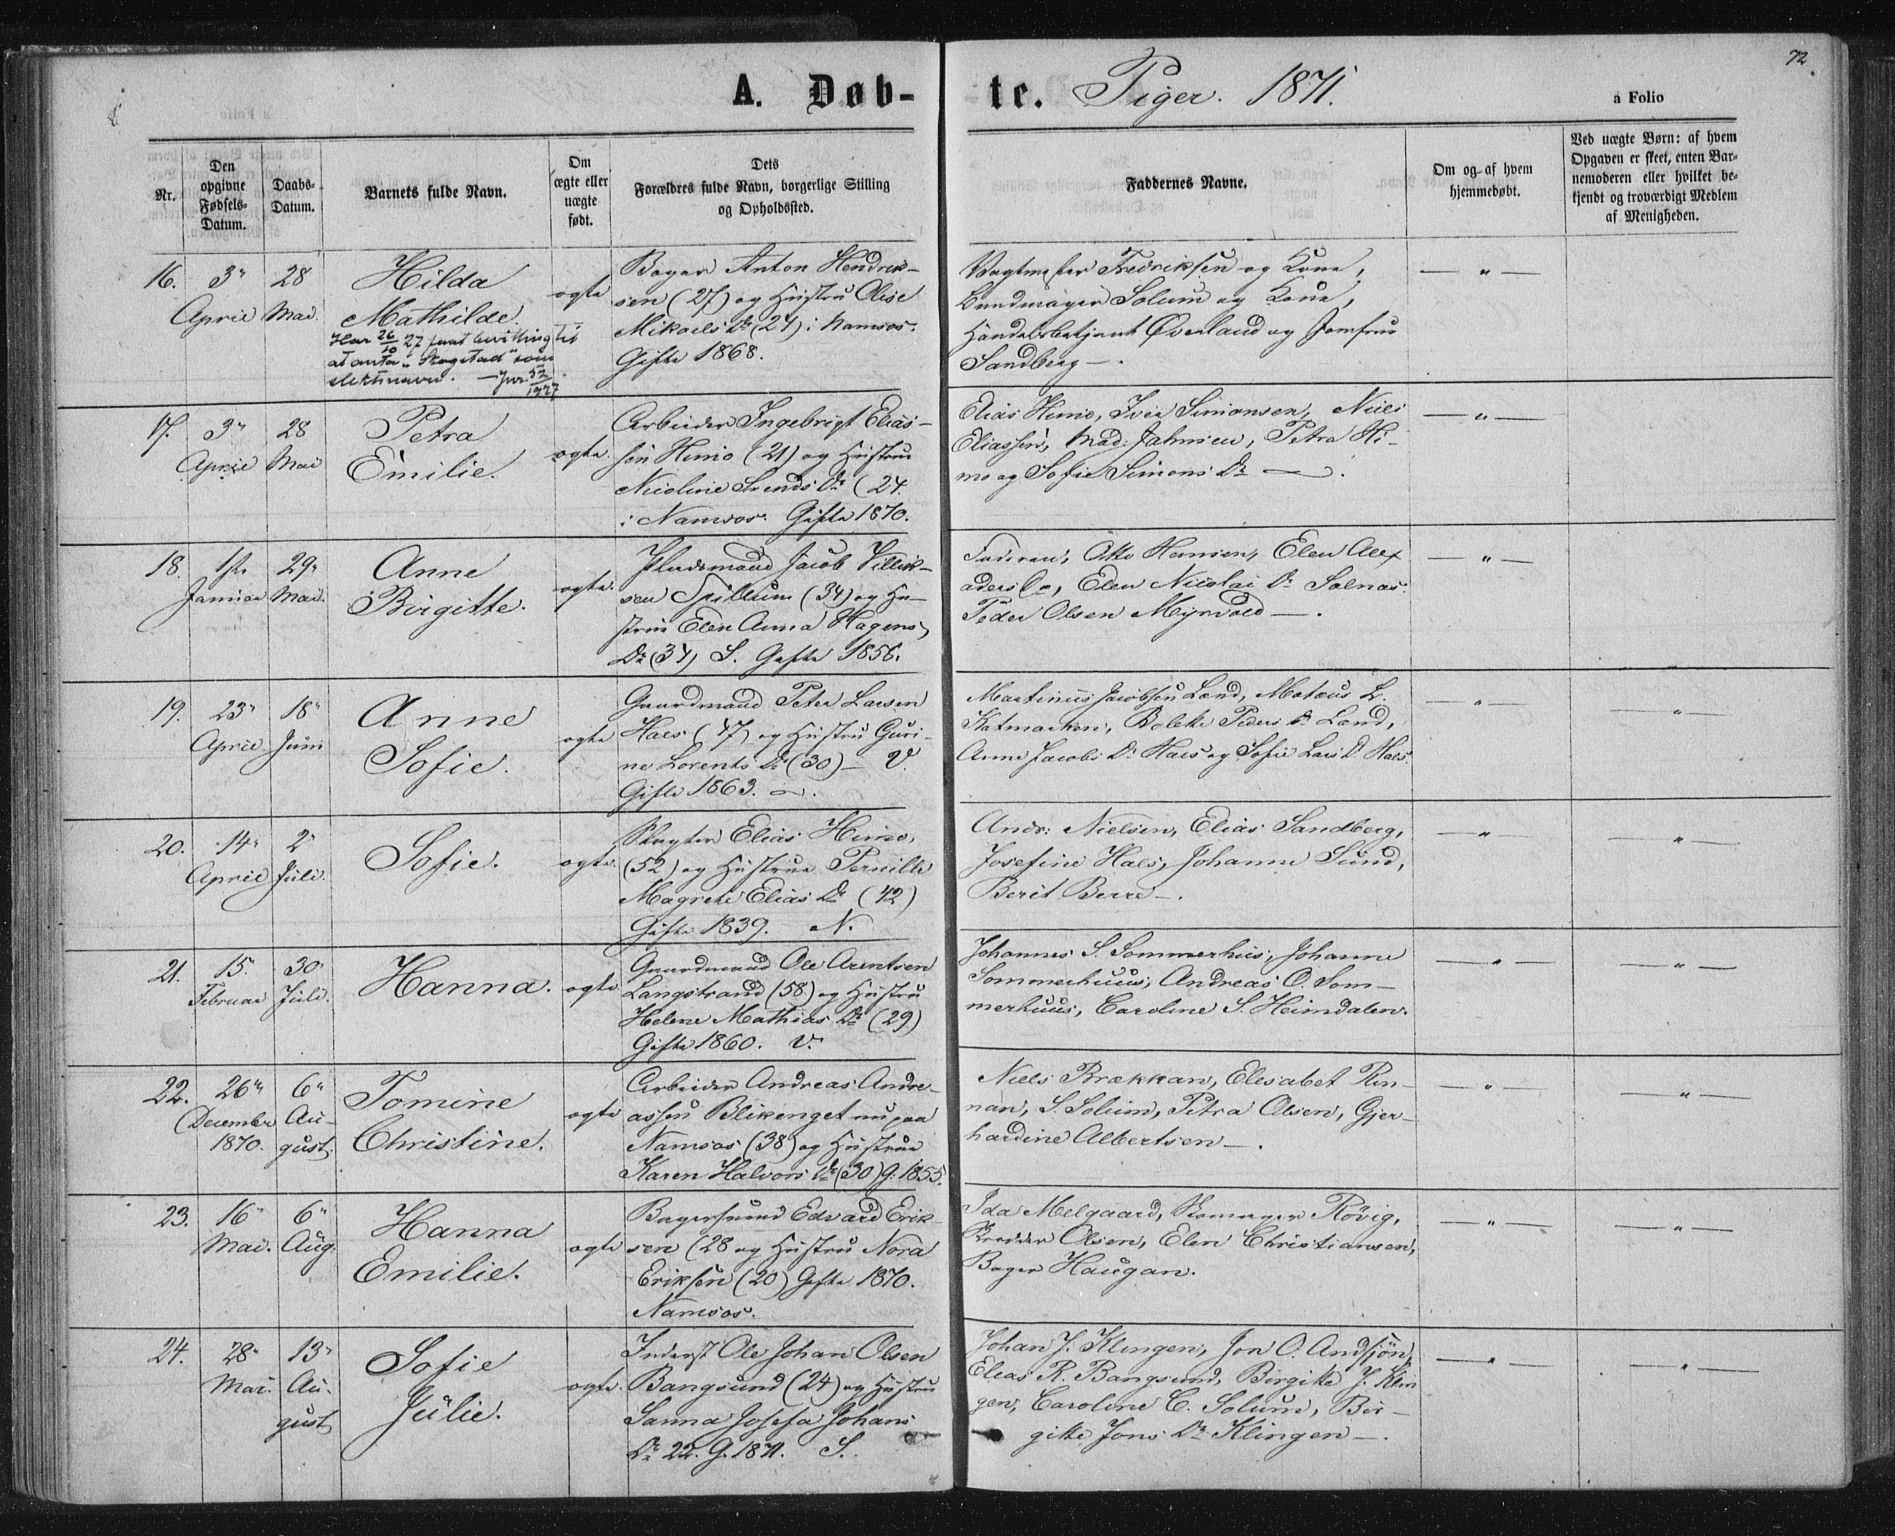 72.
A. Døb-te. Piger. 1871.
a Folio
Nr.
Den opgivne Fødsels-Datum.
Daabs-Datum.
Barnets fulde Navn.
Om ægte eller uægte født.
Dets Forældres fulde Navn, borgerlige Stilling og Opholdssted.
Faddernes Navne.
Om og af hvem hjemmedøbt.
Ved uægte Børn: af hvem Opgaven er skeet, enten Barnemoderen eller hvilket bekjendt og troværdigt Medlem af Menigheden.
16. 3" April 28 Mai.
Hilda
Mathilde
Har 26/10 27 faat bevilling til
at anta "Skogstad" som
slektsnavn. — Jnr. 52/1927
ægte
Bager Anton Hendrik-
sen (27) og Hustru Olise
Mikaels Dr (24) i Namsos.
Gifte 1868.
Vagtmester Fredriksen og Kone,
Bundmager Solum og Kone,
Handelsbetjent Øverland og Jomfru
Sandberg —.
— " —
17. 3" April 28 Mai
Petra
Emilie.
ægte.
Arbeider Ingebrigt Elias-
sen Himo (21) og Hustru
Nicoline Svends Dr (24.
i Namsos. Gifte 1870.
Elias Himo, Iver Simonsen, Niels
Eliassen, Mad: Jahnsen, Petra Hi-
mo og Sofie Simons Dr —.
— " —
18. 1ste Januar 29" Mai.
Anne
Birgitte.
ægte.
Pladsmand Jacob Villik-
sen Spillum (34) og Hu-
stru Elen Anna Hagens
Dr (34) S. Gifte 1856.
Faderen, Otto Hansen, Elen Alex
aders Dr, Elen Nicolai Dr Solnas.
Peder Olsen Myrvold —.
— " —
19. 23" April 18" Juni
Anne
Sofie.
ægte
Gaardmand Peter Larsen
Haes (47) og Hustru Guri-
ne Lorents Dr (30) — V.
Gifte 1863. —.
Martinus Jacobsen Land, Mateus L.
Katmarken, Bolette Peders Dr Land,
Anne Jacobs Dr Haes og Sofie Lars D Haes.
— " —
— " —
20. 14" April 2" Juli.
Sofie.
ægte.
Elias Himo,
(52) og Hustrue Pernille
Magrete Elias Dr (42)
Gifte 1839. N.
Andr: Nielsen, Elias Sandberg,
Josefine Haes, Johanne Sund,
Berit Berre —.
— " —
— " —
21. 15" Februar 30" Juli.
Hanna.
ægte
Gaardmand Ole Arentsen
Langstrand (58) og Hustru
Helene Mathias Dr (29)
Gifte 1860. V.
Johannes S. Sommerhus, Johanne
Sommerhuus, Andreas O. Som-
merhuus, Caroline S. Heimdalen.
— " —
— " —
22. 26" December 1870. 6" Au-
gust.
Tomine
Christine.
ægte
Arbeider Andreas Andre-
assen Blikenget nu paa
Namsos (38) og Hustrue
Karen Halvors Dr (30) G. 1855.
Niels Brækkan, Elisabet Rin-
nan, S. Solum, Petra Olsen, Gjer-
hardine Albertsen —.
— " —
— " —
23. 16" Mai. 6" Aug.
Hanna
Emilie.
ægte
Bagersvend Edvard Erik-
sen (28 og Hustru Nora
Eriksen (20) Gifte 1870.
Namsos.
Ida Melgaard, Skomager Rövig,
Olsen, Elen Christiansen,
Bager Haugan.
— " —
— " —
24. 28" Mai. 13" Au-
gust
Sofie
Julie.
ægte.
Inderst Ole Johan Olsen
Bangsund (24) og Hustru
Sanna Josefa Johans
Dr 22. G. 1871. S.
Johan J. Klingen, Jon O. Andsjön,
Elias R. Bangsund, Birgitte J. Klin
gen, Caroline C. Solum, Bir-
gitte Jons Dr Klingen —.
— " —
— " —